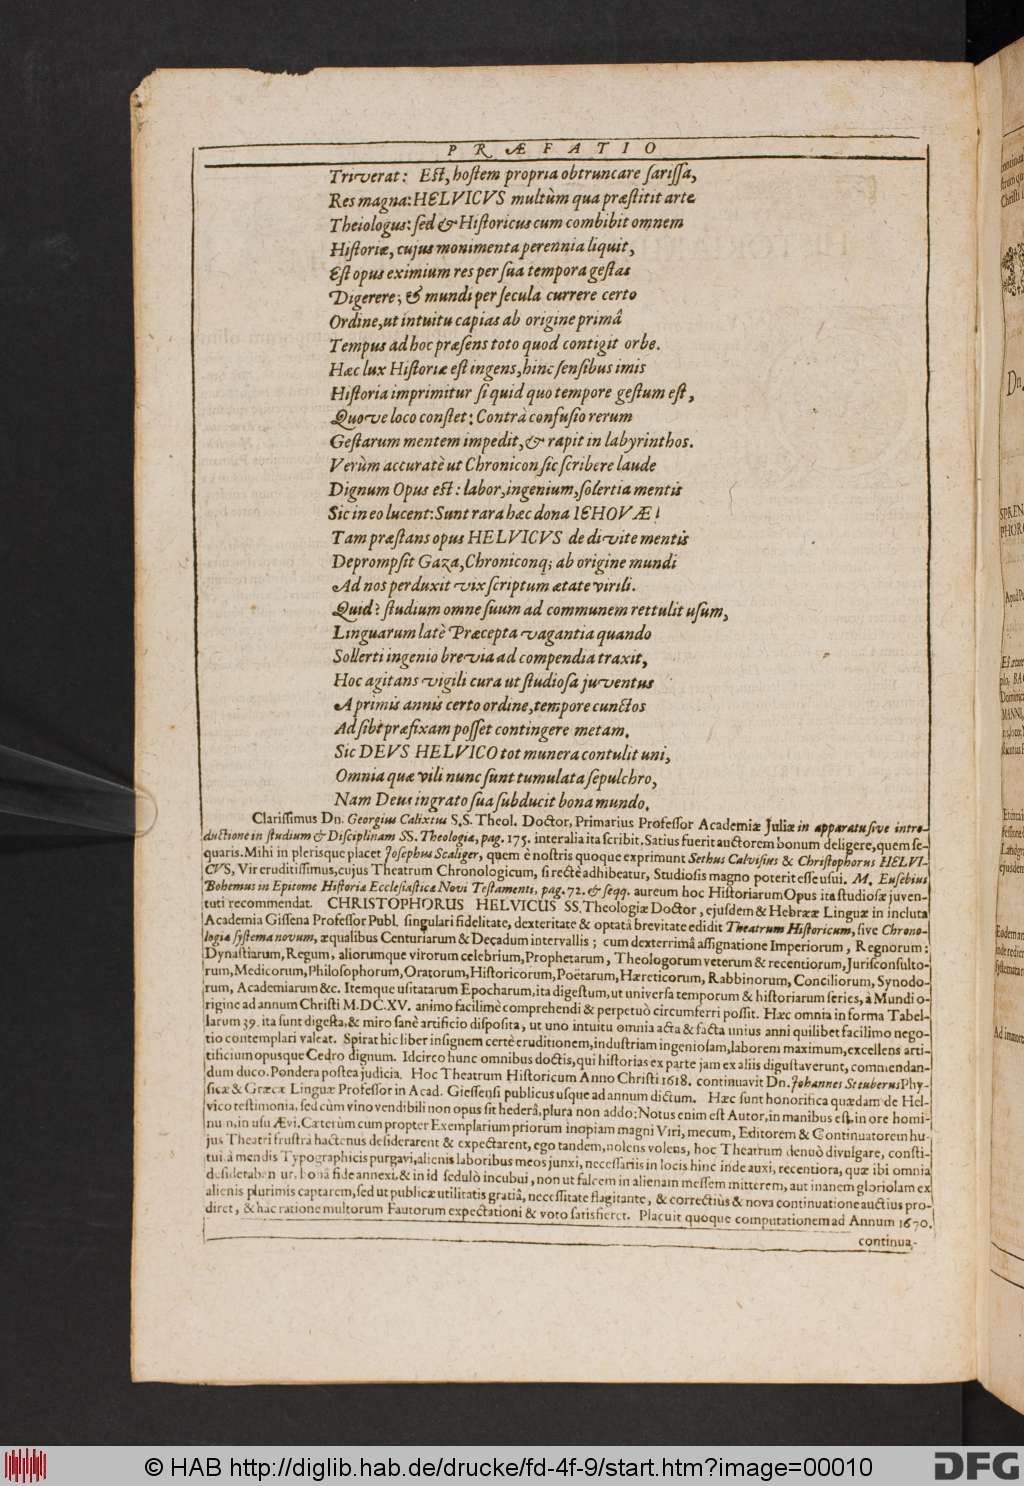 PRÆFATIO
Triverat: Eſt, hoſtem propria obtruncare ſariſſa,
Res magna: HELVICVS multùm qua præſtitit arte
Theiologus: ſed & Hiſtoricus cum combibit omnem
Hiſtoriæ, cujus monimenta perennia liquit,
Eſt opus eximium res per ſua tempora geſtas
Digerere; & mundi per ſecula currere certo
Ordine, ut intuitu capias ab origine primâ
Tempus ad hoc præſens toto quod contigit orbe.
Hæc lux Hiſtoriæ eſt ingens, hinc ſenſibus imis
Hiſtoria imprimitur ſi quid quo tempore geſtum eſt,
Quove loco conſtet: Contrà confuſio rerum
Geſtarum mentem impedit, & rapit in labyrinthos.
Verùm accuratè ut Chronicon ſic ſcribere laude
Dignum Opus eſt: labor, ingenium, ſolertia mentis
Sic in eo lucent: Sunt rara hæc dona IEHOVÆ!
Tam præſtans opus HELVICVS de divite mentis
Depromſit Gaza, Chroniconq; ab origine mundi
Ad nos perduxit vix ſcriptum ætate virili.
Quid? ſtudium omne ſuum ad communem rettulit uſum,
Linguarum latè Præcepta vagantia quando
Sollerti ingenio brevia ad compendia traxit,
Hoc agitans vigili cura ut ſtudioſa juventus
A primis annis certo ordine, tempore cunctos
Ad ſibi præfixam poſſet contingere metam.
Sic DEVS HELVICO tot munera contulit uni,
Omnia quæ vili nunc ſunt tumulata ſepulchro,
Nam Deus ingrato ſua ſubducit bona mundo.
Clariſſimus Dn. Georgius Calixtus S.S. Theol. Doctor, Primarius Profeſſor Academiæ Juliæ in apparatu ſive intro-
ductione in ſtudium & Diſciplinam SS. Theologiæ, pag. 175. inter alia ita ſcribit. Satius fuerit auctorem bonum deligere, quem ſe-
quaris. Mihi in plerisque placet Joſephus Scaliger, quem è noſtris quoque exprimunt Sethus Calviſius & Chriſtophorus HELVI-
CVS, Vir eruditiſſimus, cujus Theatrum Chronologicum, ſi rectè adhibeatur, Studioſis magno poterit eſſe uſui. M. Euſebius
Bohemus in Epitome Hiſtoriæ Eccleſiaſticæ Novi Teſtamenti, pag. 72. & ſeqq. aureum hoc Hiſtoriarum Opus ita ſtudioſæ juven-
tuti recommendat. CHRISTOPHORUS HELVICUS SS. Theologiæ Doctor, ejuſdem & Hebrææ Linguæ in incluta
Academia Giſſena Profeſſor Publ. ſingulari fidelitate, dexteritate & optatâ brevitate edidit Theatrum Hiſtoricum, ſive Chrono-
logiæ ſyſtema novum, æqualibus Centuriarum & Decadum intervallis; cum dexterrimâ aſſignatione Imperiorum, Regnorum:
Dynaſtiarum, Regum, aliorumque virorum celebrium, Prophetarum, Theologorum veterum & recentiorum, Juriſconſulto-
rum, Medicorum, Philoſophorum, Oratorum, Hiſtoricorum, Poëtarum, Hæreticorum, Rabbinorum, Conciliorum, Synodo-
rum, Academiarum &c. Itemque uſitatarum Epocharum, ita digeſtum, ut univerſa temporum & hiſtoriarum ſeries, à Mundi o-
rigine ad annum Chriſti M.DC.XV. animo facilimè comprehendi & perpetuò circumferri poſſit. Hæc omnia in forma Tabel-
larum 39. ita ſunt digeſta, & miro ſanè artificio diſpoſita, ut uno intuitu omnia acta & facta unius anni quilibet facilimo nego-
tio contemplari valeat. Spirat hic liber inſignem certè eruditionem, induſtriam ingenioſam, laborem maximum, excellens arti-
tificium opusque Cedro dignum. Idcirco hunc omnibus doctis, qui hiſtorias ex parte jam ex aliis diguſtaverunt, commendan-
dum duco. Pondera poſtea judicia. Hoc Theatrum Hiſtoricum Anno Chriſti 1618. continuavit Dn. Johannes Steuberus Phy-
ſicæ & Græcæ Linguæ Profeſſor in Acad. Gieſſenſi publicus uſque ad annum dictum. Hæc ſunt honorifica quædam de Hel-
vico teſtimonia, ſed cùm vino vendibili non opus ſit hederâ, plura non addo: Notus enim eſt Autor, in manibus eſt, in ore homi-
nun, in uſu Ævi. Cæterùm cum propter Exemplarium priorum inopiam magni Viri, mecum, Editorem & Continuatorem hu-
jus Theatri fruſtrà hactenus deſiderarent & expectarent, ego tandem, nolens volens, hoc Theatrum denuò divulgare, conſti-
tui, à mendis Typographicis purgavi, alienis laboribus meos junxi, neceſſariis in locis hinc inde auxi, recentiora, quæ ibi omnia
deſiderabantur, bonâ fide annexi, & in id ſedulò incubui, non ut falcem in alienam meſſem mitterem, aut inanem gloriolam ex
alienis plurimis captarem, ſed ut publicæ utilitatis gratiâ, neceſſitate flagitante, & correctiùs & nova continuatione auctius pro-
diret, & hac ratione multorum Fautorum expectationi & voto ſatisfieret. Placuit quoque computationem ad Annum 1670.
continua-
© HAB http://diglib.hab.de/drucke/fd-4f-9/start.htm?image=00010
DFG